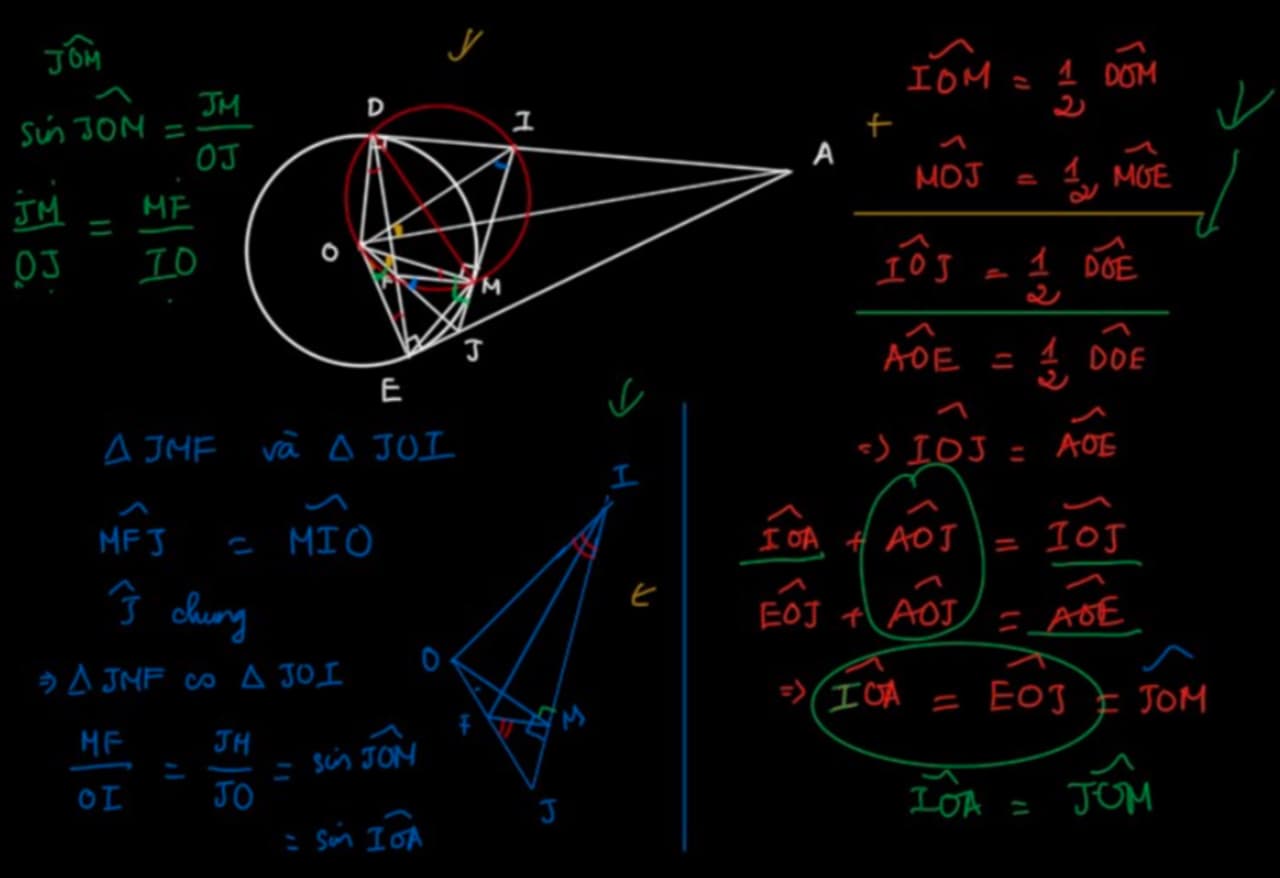 JÔM
sin JÔM = JM/OJ
JM/OJ = MF/IO
D
I
A
O
F
M
J
E
IÔM = 1/2 DÔM
+
MÔJ = 1/2 MÔE
IÔJ = 1/2 DÔE
AÔE = 1/2 DÔE
=> IÔJ = AÔE
IÔA + AÔJ = IÔJ
EÔJ + AÔJ = AÔE
=> IÔA = EÔJ = JÔM
IÔA = JÔM
Δ JMF và Δ JOI
MF̂J = MÎO
Ĵ chung
=> Δ JMF ∽ Δ JOI
MF/OI = JM/JO = sin JÔM
= sin IÔA
I
O
F
M
J